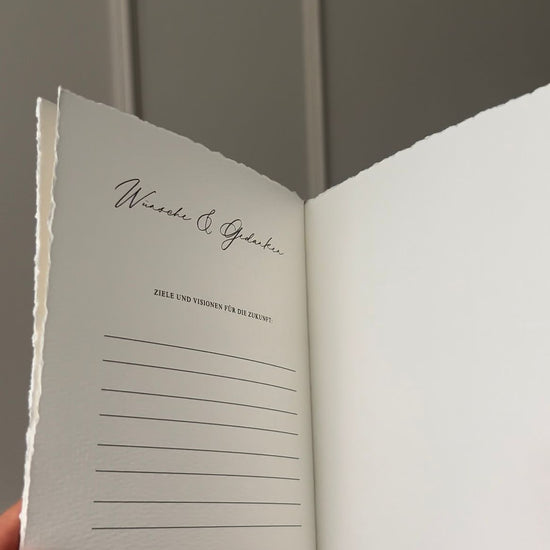 Wünsche & Gedanken
ZIELE UND VISIONEN FÜR DIE ZUKUNFT: